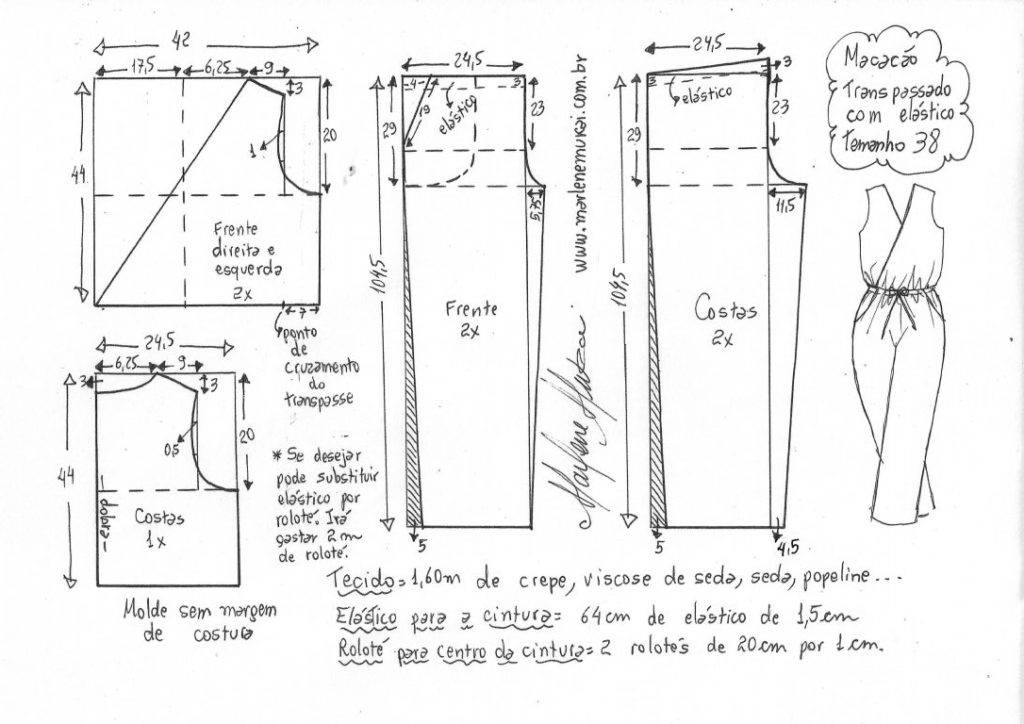 42
17,5 6,25 9
3
44
1
20
Frente
direita e
esquerda
2x
7
ponto
de
cruzamento
do
transpasse
24,5
6,25 9
3
3
44
0,5
20
dobra
Costas
1x
Molde sem margem
de costura
* Se desejar
pode substituir
elástico por
roloté. Irá
gastar 2m
de roloté.
24,5
4
3
19
elástico
29
23
5,75
104,5
Frente
2x
5
www.marlenemukai.com.br
Marlene Mukai
24,5
3
3
elástico
29
23
11,5
104,5
Costas
2x
5
4,5
Macacão
Transpassado
com elástico
Tamanho 38
Tecido = 1,60m de crepe, viscose de seda, seda, popeline...
Elástico para a cintura = 64cm de elástico de 1,5cm
Roloté para centro da cintura = 2 rolotés de 20cm por 1cm.